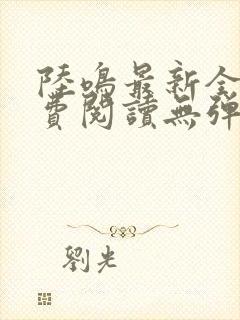 陸鳴最新全
費閱讀無彈
劉光